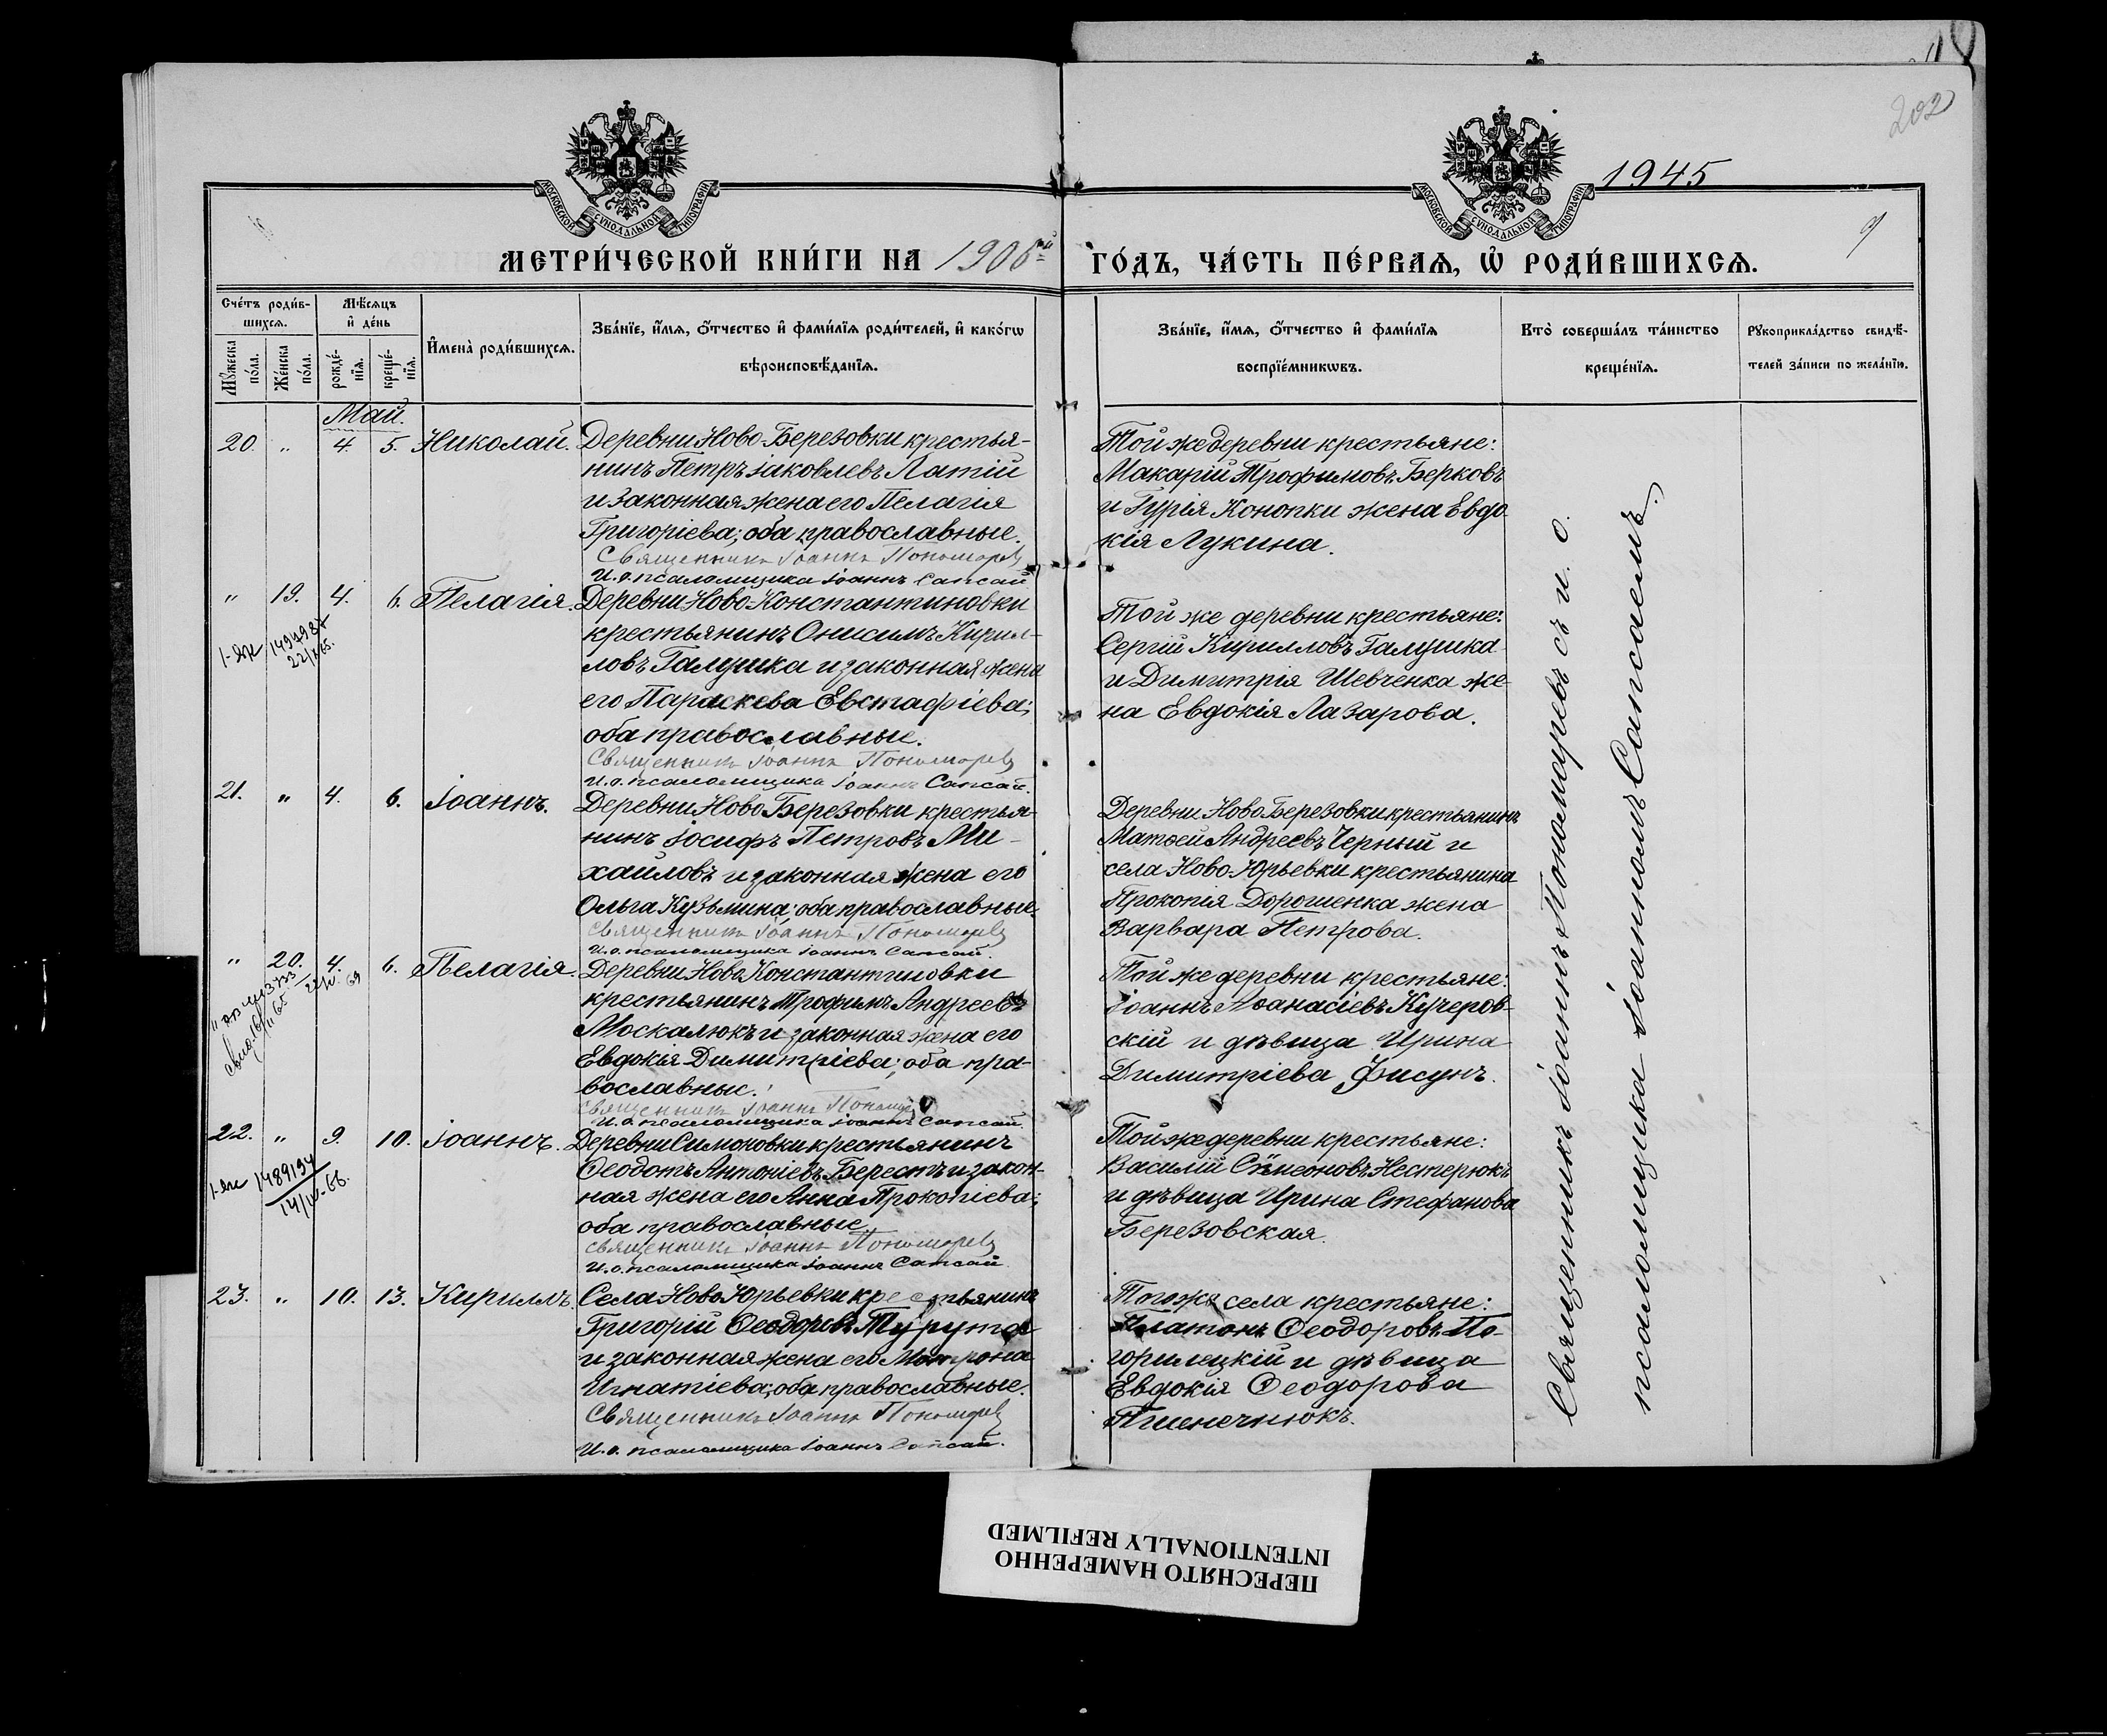 202
1945
9
МОСКОВСКОЙ СѴНОДАЛЬНОЙ ТИПОГРАФІИ
МОСКОВСКОЙ СѴНОДАЛЬНОЙ ТИПОГРАФІИ
МЕТРИ́ЧЕСКОЙ КНИ́ГИ НА 1906й ГО́ДЪ, ЧА́СТЬ ПЕ́РВАѦ, Ѡ҆ РОДИ́ВШИХСѦ.
Сче́тъ роди́в-
шихсѧ.
Мꙋ́жеска по́ла.
Же́нска по́ла.
Мѣ́сѧцъ
и҆ де́нь
рожде́-
нїѧ.
креще́-
нїѧ.
И҆мена̀ роди́вшихсѧ.
Зва́нїе, и҆́мѧ, ѻ҆́тчество и҆ фами́лїѧ роди́телей, и҆ како́гѡ
вѣроисповѣ́данїѧ.
Зва́нїе, и҆́мѧ, ѻ҆́тчество и҆ фами́лїѧ
воспрїе́мникѡвъ.
Кто̀ соверша́лъ та́инство
креще́нїѧ.
Рꙋкоприкла́дство свидѣ́-
телей за́писи по жела́нїю.
Май.
20. " 4. 5. Николай.
Деревни Ново-Березовки крестья-
нинъ Петръ Іаковлевъ Латій
и законная жена его Пелагія
Григоріева; оба православные.
Священникъ Іоаннъ Пономаревъ
И. о. псаломщика Іоаннъ Сапсай
Той же деревни крестьяне:
Макарій Трофимовъ Берковъ
и Гурія Конопки жена Евдо-
кія Лукина.
" 19. 4. 6. Пелагія.
1494987
22/ 65.
Деревни Ново-Константиновки
крестьянинъ Онисимъ Кирил-
ловъ Галушка и законная жена
его Параскева Евстафіева;
оба православные.
Священникъ Іоаннъ Пономаревъ
И. о. псаломщика Іоаннъ Сапсай.
Той же деревни крестьяне:
Сергій Кирилловъ Галушка
и Димитрія Шевченка же-
на Евдокія Лазарова.
21. " 4. 6. Іоаннъ.
Деревни Ново-Березовки крестья-
нинъ Іосифъ Петровъ Ми-
хайловъ и законная жена его
Ольга Кузьмина; оба православные.
Священникъ Іоаннъ Пономаревъ
И. о. псаломщика Іоаннъ Сапсай.
Деревни Ново-Березовки крестьянинъ
Матѳей Андреевъ Черный и
села Ново-Юрьевки крестьянина
Прокопія Дорошенка жена
Варвара Петрова.
" 20. 4. 6. Пелагія.
Деревни Ново-Константиновки
крестьянинъ Трофимъ Андреевъ
Москалюкъ и законная жена его
Евдокія Димитріева; оба пра-
вославные.
Священникъ Іоаннъ
И. о. псаломщика Іоаннъ Сапсай.
Той же деревни крестьяне:
Іоаннъ Аѳанасіевъ Кучеров-
скій и дѣвица Ирина
Димитріева Фисунъ.
22. " 9. 10. Іоаннъ.
1489194
14/IV-66.
Деревни Симоновки крестьянинъ
Ѳеодотъ Антоніевъ Берестъ и закон-
ная жена его Анна Прокопіева;
оба православные.
Священникъ Іоаннъ Пономаревъ
И. о. псаломщика Іоаннъ Сапсай
Той же деревни крестьяне:
Василій Сѵмеоновъ Нестерюкъ
и дѣвица Ирина Стефанова
Березовская.
23. " 10. 13. Кириллъ.
Села Ново-Юрьевки крестьянинъ
Григорій Ѳеодоровъ Турута
и законная жена его Матрона
Игнатіева; оба православные.
Священникъ Іоаннъ Пономаревъ
И. о. псаломщика Іоаннъ Сапсай.
Того же села крестьяне:
Платонъ Ѳеодоровъ По-
горилецкій и дѣвица
Евдокія Ѳеодорова
Пшенечнюкъ.
Священникъ Іоаннъ Пономаревъ съ и. о.
псаломщика Іоанномъ Сапсаемъ.
ПЕРЕСНЯТО НАМЕРЕННО
INTENTIONALLY REFILMED